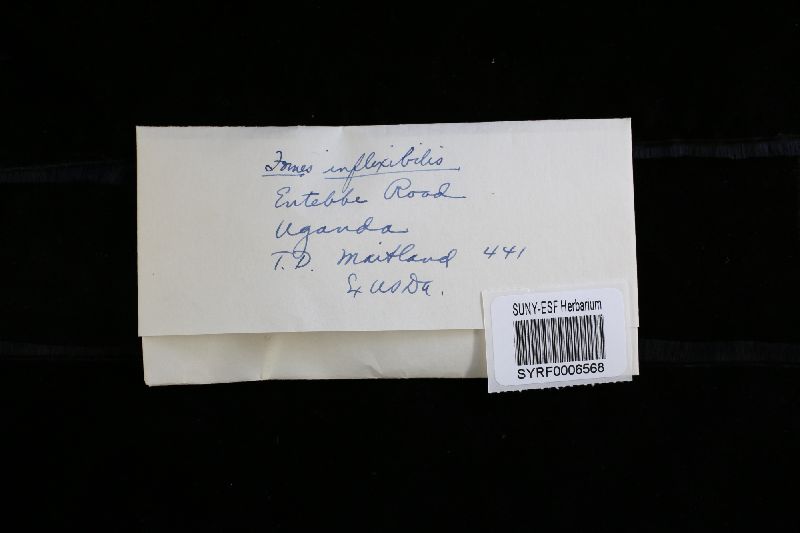 Fomes inflexibilis
Entebbe Road
Uganda
T.D. Maitland 441
Ex USDA.
SUNY-ESF Herbarium
SYRF0006568